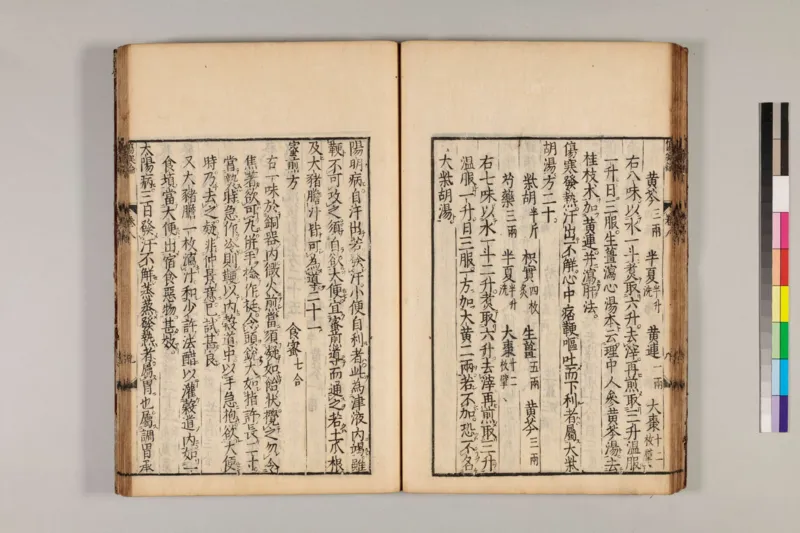 黄芩三兩　半夏半升洗　黄連一兩　大棗十二枚擘
右八味以水一斗煑取六升去滓再煎取三升温服
一升日三服生薑瀉心湯本云理中人參黄芩湯去
桂枝木加黄連并瀉肝法
傷寒發熱汗出不解心中痞鞕嘔吐而下利者屬大柴
胡湯方二十
柴胡半斤　枳實四枚炙　生薑五兩　黄芩三兩
芍藥三兩　半夏半升洗　大棗十二枚擘
右七味以水一斗二升煑取六升去滓再煎取三升
温服一升日三服一方加大黄二兩若不加恐不名
大柴胡湯
陽明病自汗出若發汗小便自利者此為津液内竭雖
鞕不可攻之須自欲大便宜蜜煎導而通之若土瓜根
及大猪膽汁皆可為導二十一
蜜煎方
食蜜七合
右一味於銅器内微火煎當須凝如飴狀攪之勿令
焦著欲可丸併手捻作挺令頭鋭大如指許長二寸
當熱時急作冷則鞕以内穀道中以手急抱欲大便
時乃去之疑非仲景意已試甚良
又大猪膽一枚瀉汁和少許法醋以灌穀道内如一
食頃當大便出宿食惡物甚效
太陽病三日發汗不解蒸蒸發熱者屬胃也屬調胃承